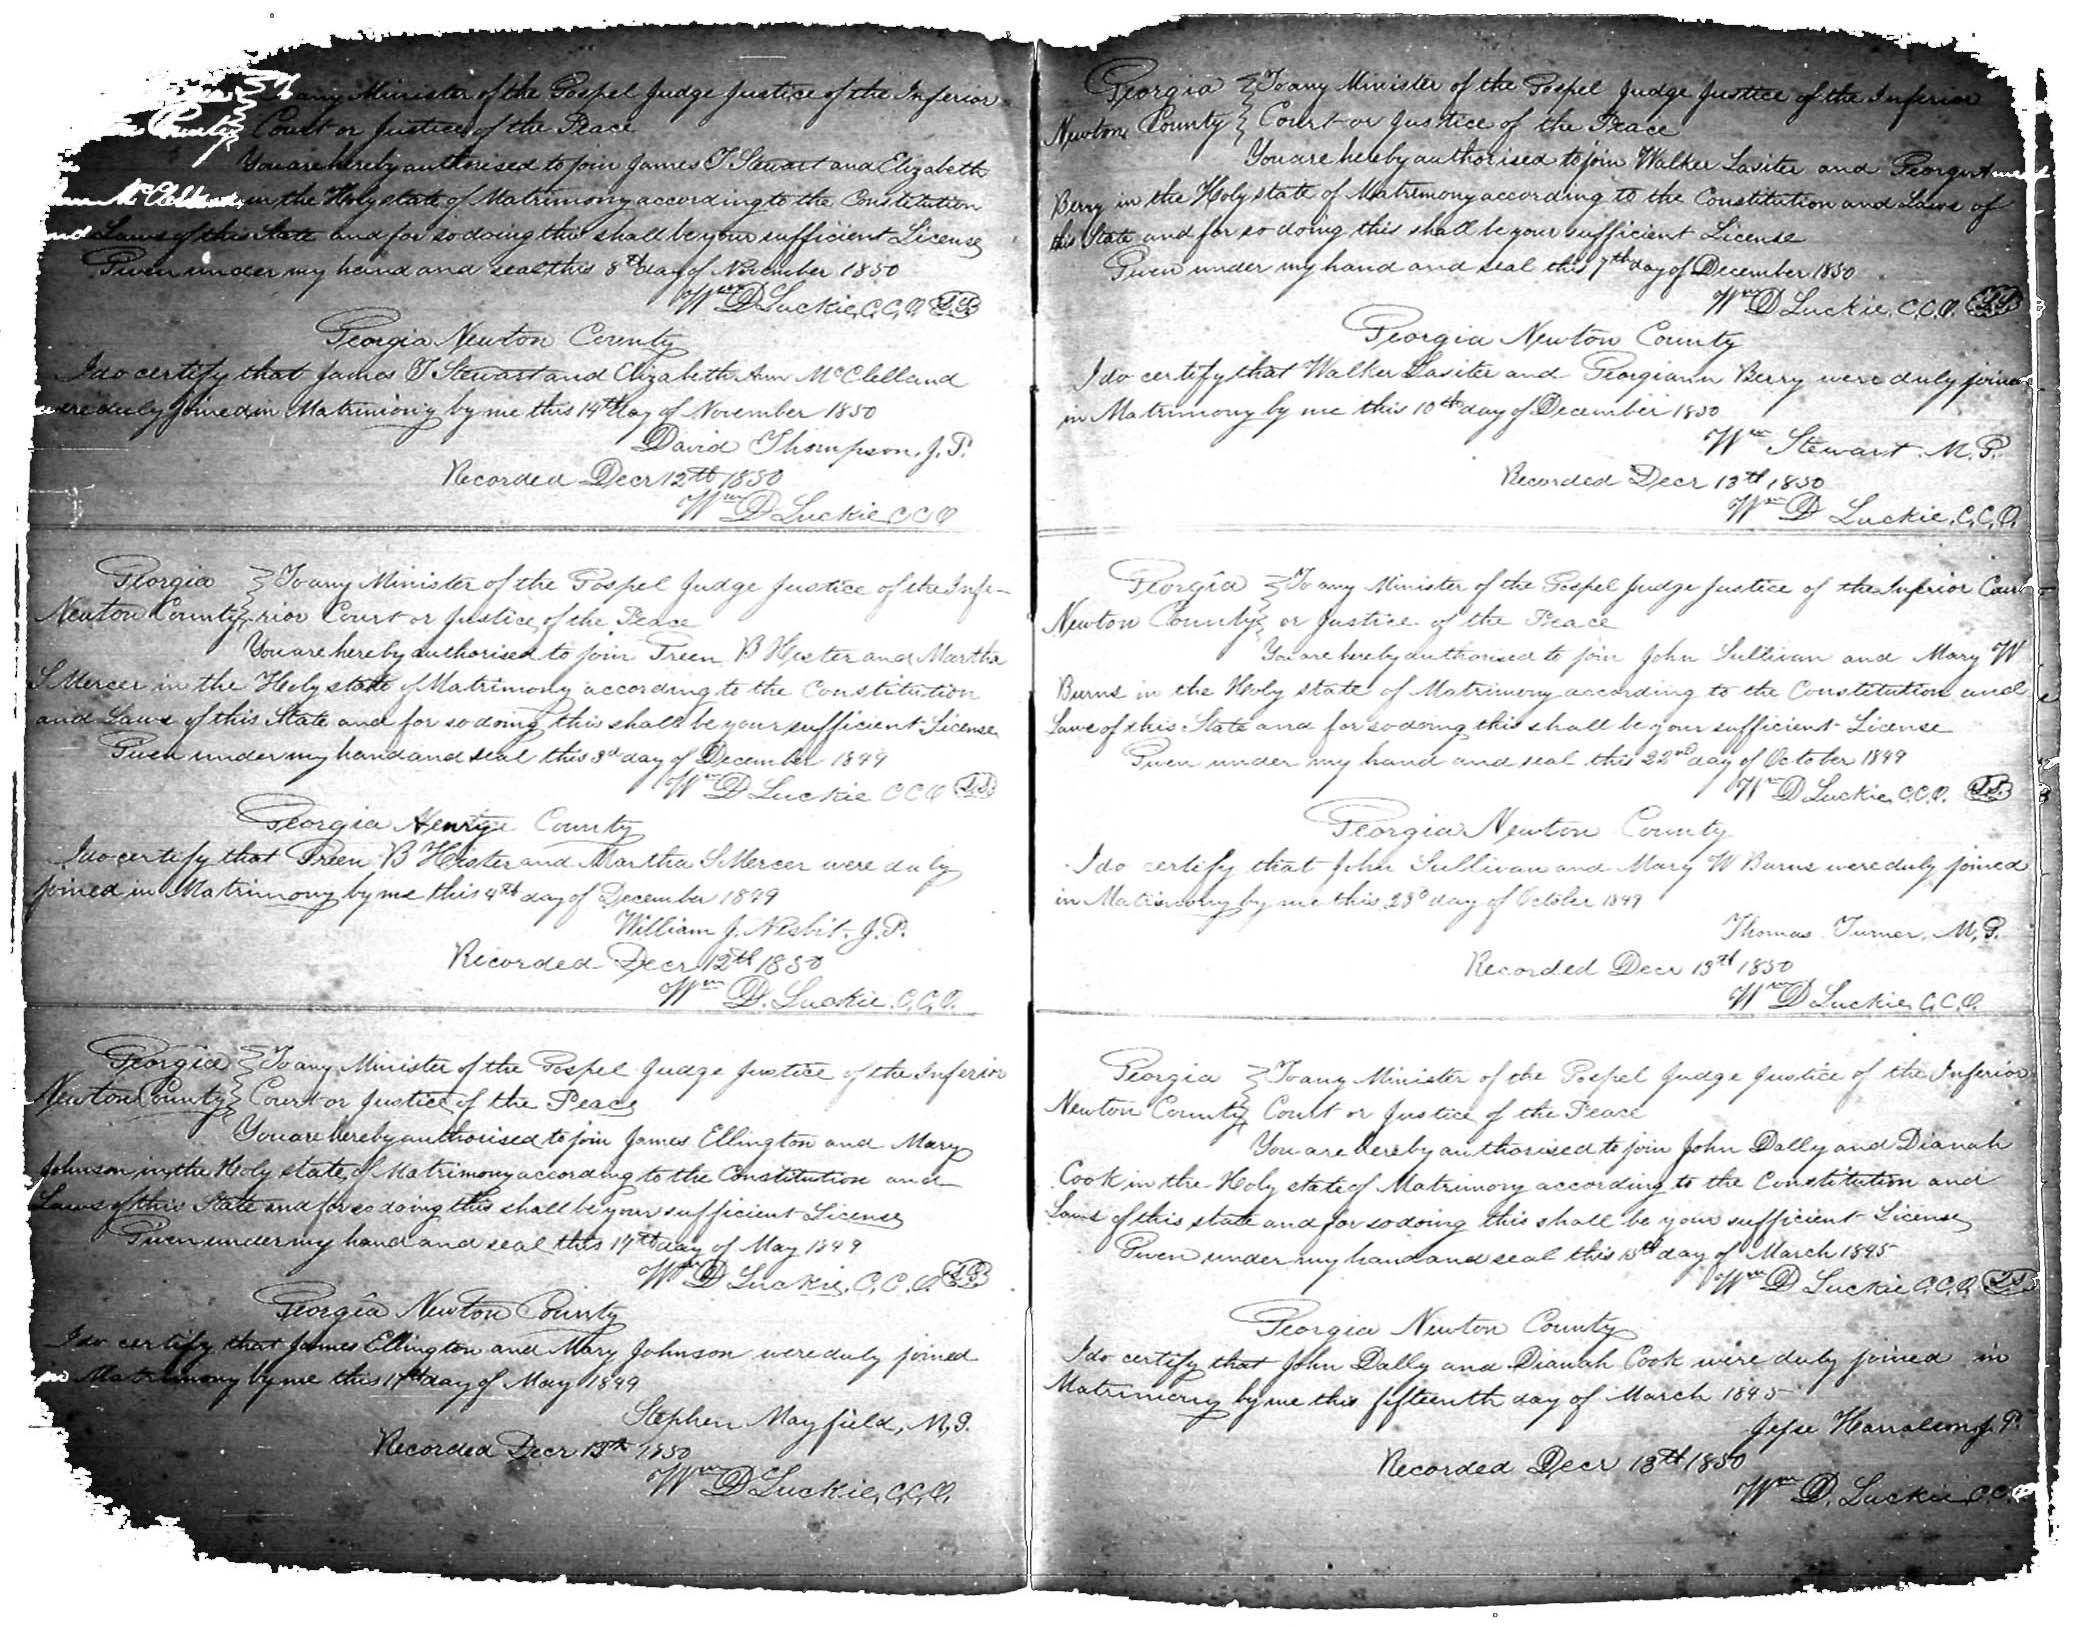 To any Minister of the Gospel Judge Justice of the Inferior
County Court or Justice of the Peace
You are hereby authorised to join James T Stewart and Elizabeth
Ann McClelland in the Holy state of Matrimony according to the Constitution
and Laws of this State and for so doing this shall be your sufficient License
Given under my hand and seal this 8th day of November 1850
Wm D Luckie, C, C, O L.S.
Georgia Newton County
I do certify that James T Stewart and Elizabeth Ann McClelland
were duly joined in Matrimony by me this 14th day of November 1850
David Thompson, J. P.
Recorded Decr 12th 1850
Wm D Luckie C C O
Georgia To any Minister of the Gospel Judge Justice of the Infe-
Newton County rior Court or Justice of the Peace
You are hereby authorised to join Green B Hester and Martha
S Mercer in the Holy state of Matrimony according to the Constitution
and Laws of this State and for so doing this shall be your sufficient License
Given under my hand and seal this 3d day of December 1849
Wm D Luckie C C O L.S.
Georgia Henry County
I do certify that Green B Hester and Martha S Mercer were duly
joined in Matrimony by me this 4th day of December 1849
William J. Nesbit. J. P.
Recorded Decr 12th 1850
Wm D. Luckie. C, C, O.
Georgia To any Minister of the Gospel Judge Justice of the Inferior
Newton County Court or Justice of the Peace
You are hereby authorised to join James Ellington and Mary
Johnson in the Holy state of Matrimony according to the Constitution and
Laws of this State and for so doing this shall be your sufficient License
Given under my hand and seal this 17th day of May 1849
Wm D Luckie, C, C, O. L.S.
Georgia Newton County
I do certify that James Ellington and Mary Johnson were duly joined
in Matrimony by me this 17th day of May 1849
Stephen Mayfield, M, G.
Recorded Decr 13th 1850
Wm D Luckie, C, C, O.
Georgia To any Minister of the Gospel Judge Justice of the Inferior
Newton County Court or Justice of the Peace
You are hereby authorised to join Walker Lasiter and Georgia Ann
Berry in the Holy state of Matrimony according to the Constitution and Laws of
this State and for so doing this shall be your sufficient License
Given under my hand and seal this 7th day of December 1850
Wm D Luckie, C. C. O. L.S.
Georgia Newton County
I do certify that Walker Lasiter and Georgiann Berry were duly joined
in Matrimony by me this 10th day of December 1850
Wm Stewart. M. G.
Recorded Decr 13th 1850
Wm D Luckie, C, C, O,
Georgia To any Minister of the Gospel Judge Justice of the Inferior Court
Newton County or Justice of the Peace
You are hereby authorised to join John Sullivan and Mary W
Burns in the Holy state of Matrimony according to the Constitution and
Laws of this State and for so doing this shall be your sufficient License
Given under my hand and seal this 22nd day of October 1849
Wm D Luckie, C. C. O. L.S.
Georgia Newton County
I do certify that John Sullivan and Mary W Burns were duly joined
in Matrimony by me this 23d day of October 1849
Thomas Turner, M, G.
Recorded Decr 13th 1850
Wm D Luckie, C, C, O.
Georgia To any Minister of the Gospel Judge Justice of the Inferior
Newton County Court or Justice of the Peace
You are hereby authorised to join John Dally and Dianah
Cook in the Holy state of Matrimony according to the Constitution and
Laws of this state and for so doing this shall be your sufficient License
Given under my hand and seal this 15th day of March 1845
Wm D Luckie C. C. O. L.S.
Georgia Newton County
I do certify that John Dally and Dianah Cook were duly joined in
Matrimony by me this fifteenth day of March 1845
Jesse Harralson J. P.
Recorded Decr 13th 1850
Wm D. Luckie C. C. O